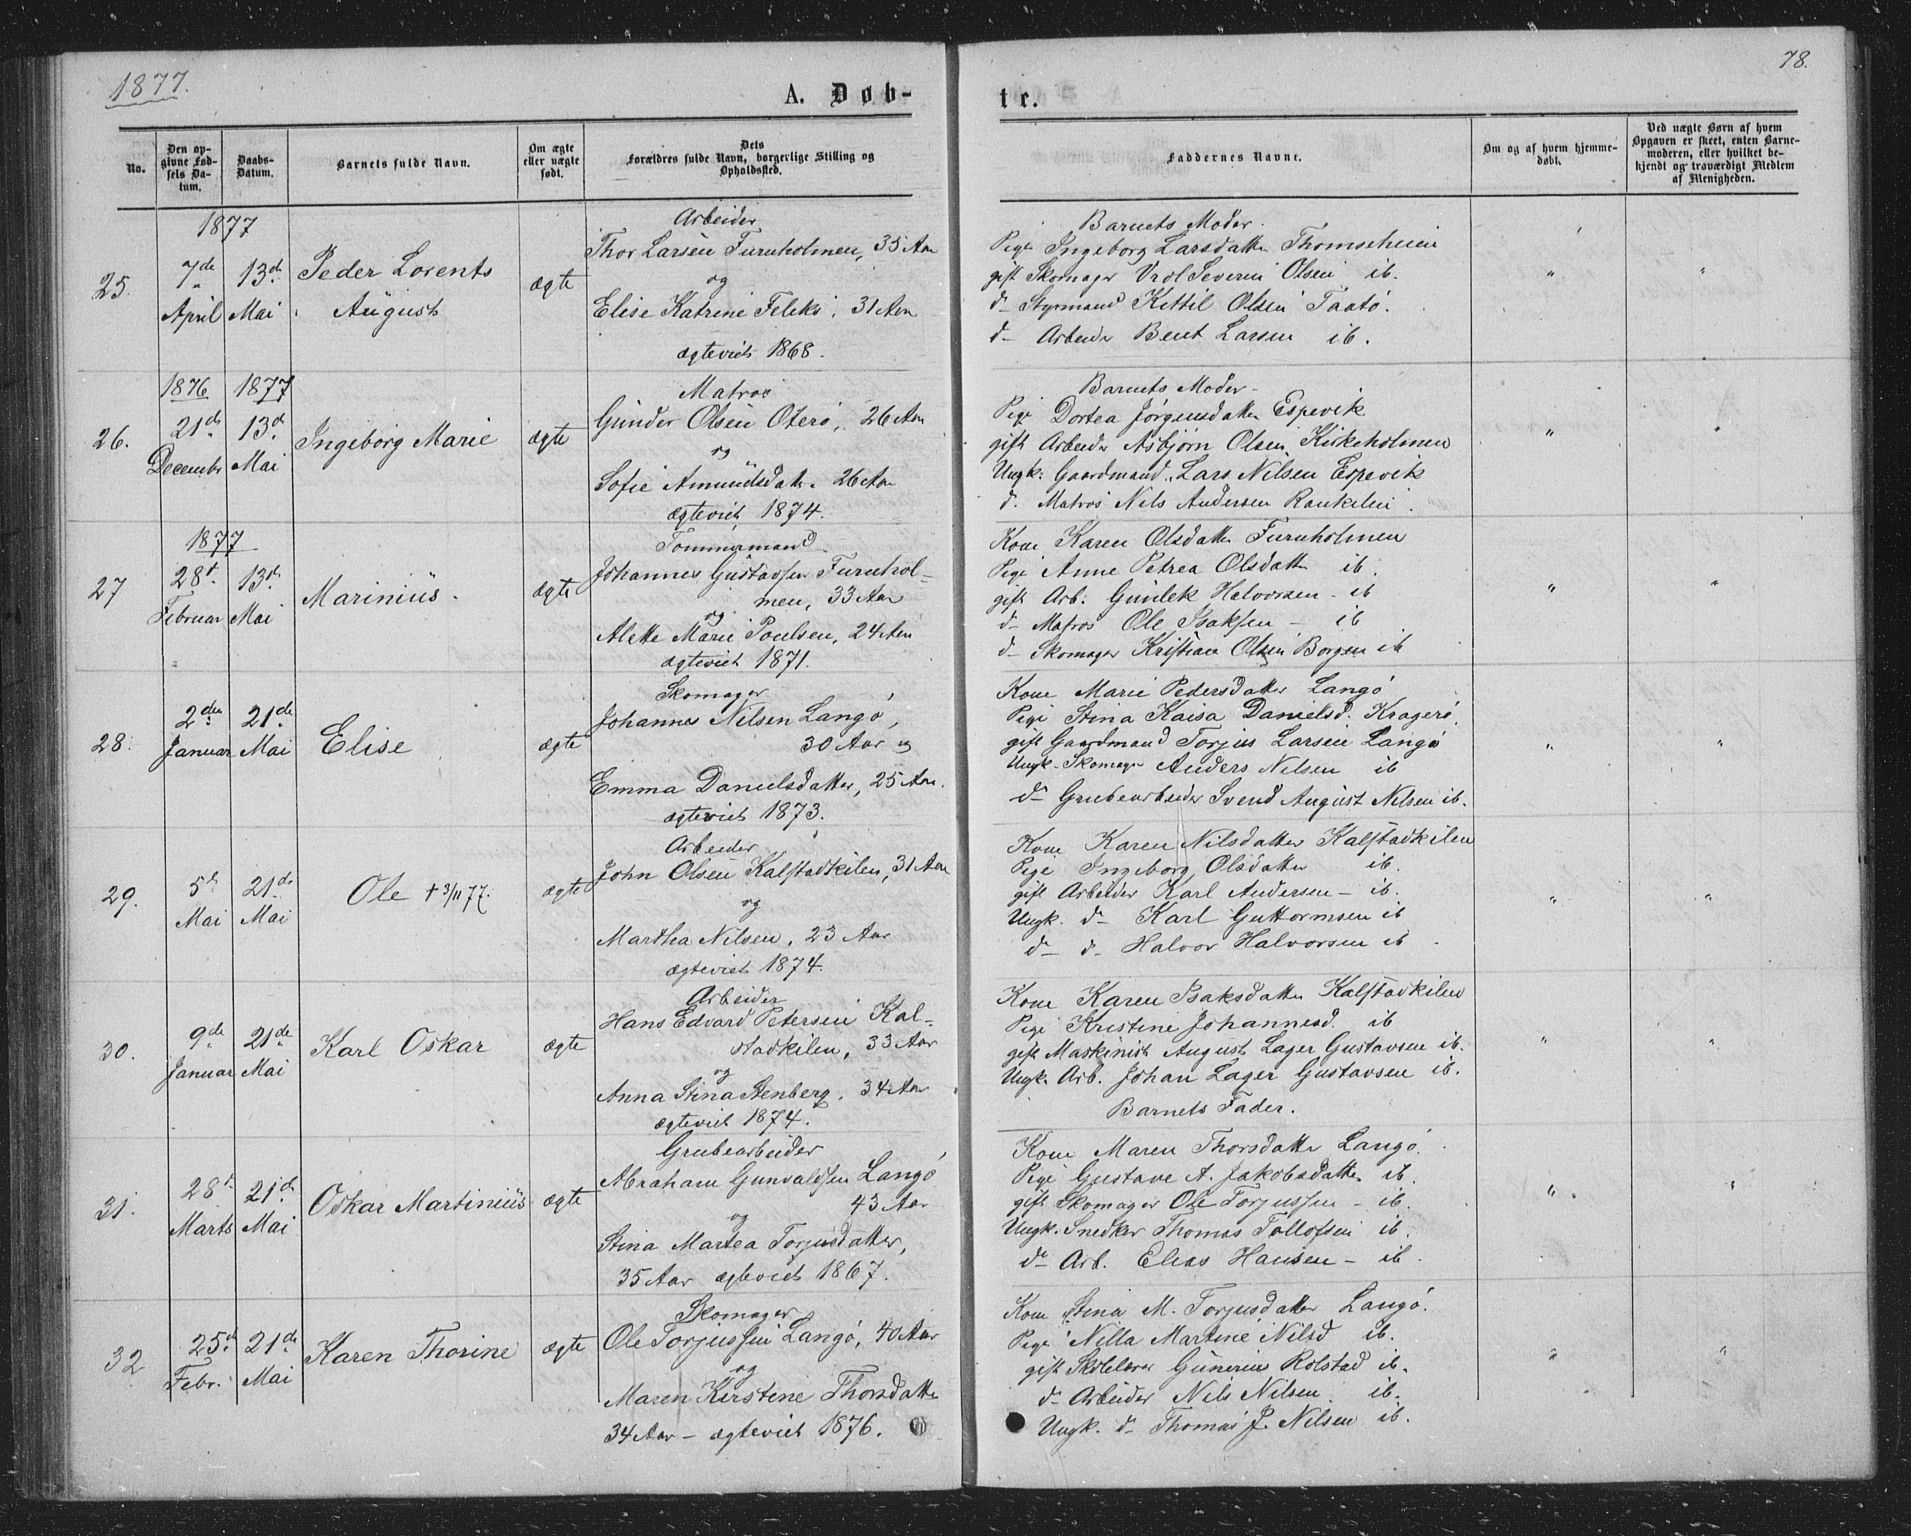 1877.
A. Døb-
No.
Den op-
givne Fød-
sels Da-
tum.
Daabs-
Datum.
Barnets fulde Navn.
Om ægte
eller uægte
født.
Dets
Forældres fulde Navn, borgerlige Stilling og
Opholdssted.
1877
25.
7de
April
13de
Mai
Peder Lorents
August
ægte
Arbeider
Thor Larsen Furuholmen, 35 Aar
og
Elise Katrine Feleks, 31 Aar
ægteviet 1868.
1876
1877
26.
21de
Decembr
13d
Mai
Ingeborg Marie
ægte
Matros
Gunder Olsen Oterø, 26 Aar
og
Sofie Amundsdatt. 26 Aar
ægteviet 1874.
1877
27
28t
Februar
13de
Mai
Marinius.
ægte
Tømmermand
Johannes Gustavsen Furuhol-
men, 33 Aar
og
Alette Marie Poulsen, 24 Aar
ægteviet 1871.
28.
2den
Januar
21de
Mai
Elise
ægte
Skomager
Johannes Nilsen Langø,
30 Aar og
Emma Danielsdatter, 25 Aar.
ægteviet 1873.
29.
5te
Mai
21de
Mai
Ole † 3/11 77.
ægte
Arbeider
John Olsen Kalstadkilen, 31 Aar
og
Martha Nilsen, 23 Aar
ægteviet 1874.
30.
9de
Januar
21de
Mai
Karl Oskar
ægte
Arbeider
Hans Edvard Petersen Kal-
stadkilen, 33 Aar
og
Anna Stina Stenberg, 34 Aar
ægteviet 1874.
31.
28t
Marts
21de
Mai
Oskar Martinius
ægte
Grubearbeider
Abraham Gunvaldsen Langø
43 Aar
og
Stina Martea Torjusdatter,
35 Aar ægteviet 1867.
32
25d
Febr.
21de
Mai
Karen Thorine
ægte
Skomager
Ole Torjussen Langø, 40 Aar
og
Maren Kirstine Thorsdatte
34 Aar – ægteviet 1876.
78.
te.
Faddernes Navne.
Om og af hvem hjemme-
døbt.
Ved uægte Børn af hvem
Opgaven er skeet, enten Barne-
moderen, eller hvilket be-
kjendt og troværdigt Medlem
af Menigheden.
Barnets Moder.
Pige Ingeborg Larsdatte Thomseheien
gift Skomager Severin Olsen ib.
d– Styrmand Kittil Olsen Taatø.
d– Arbeider Bent Larsen ib.
" "
Barnets Moder.
Pige Dortea Jørgensdatte Espevik
gift Arbeider Asbjørn Olsen Kirkeholmen
Ungk. Gaardmand Lars Nilsen Espevik
d. Matros Nils Andersen Rønkilen.
" "
Kone Karen Olsdatte Furuholmen
Pige Anne Petrea Olsdatte ib.
gift Arb. Gunlek Halvorsen – ib
d– Matros Ole Isaksen – ib
d– Skomager Kristian Olsen Borgen ib
" "
Kone Marie Pedersdatter Langø
Pige Stina Kaisa Danielsd. Kragerø.
gift Gaardmand Torjus Larsen Langø
Ungk. Skomager Anders Nilsen ib
d– Grubearbeider Svend August Nilsen ib.
" "
Kone Karen Nilsdatter Kalstadkilen
Pige Ingeborg Olsdatter ib.
gift Arbeider Karl Andersen – ib.
Ungk. d– Karl Guttormsen ib
d– d– Halvor Halvorsen ib
" "
Kone Karen Isaksdatte Kalstadkilen
Pige Kristine Johannesd. ib
gift Maskinist August Lager Gustavsen ib.
Ungk. Arb. Johan Lager Gustavsen ib.
Barnets Fader.
" "
Kone Maren Thorsdatte Langø.
Pige Gustave A. Jakobsdatte ib.
gift Skomager Ole Torjussen – ib.
Ungk. Snedker Thomas Tollofsen ib.
d– Arb. Elias Hansen – ib.
" "
Kone Stina M. Torjusdatte Langø.
Pige Nilla Martine Nilsd ib.
gift Skolelærer Gunerius Rolstad ib.
d– Arbeider Nils Nilsen ib.
Ungk. d– Thomas J. Nilsen ib.
" "